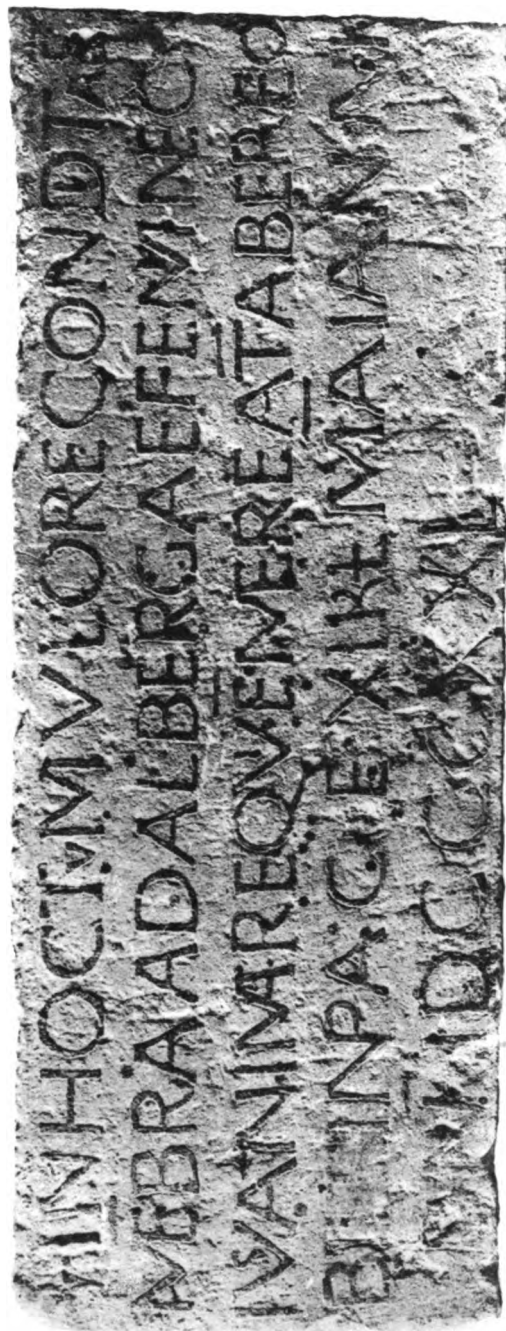 IN HOC TVMVLO RECONDTAE
MEBRA ADALBERGAE FEMINE C
IVS ANIM REQVEM EREAT ABERE O
BIIT IN PACE XI KL MAI ANNI
DNI